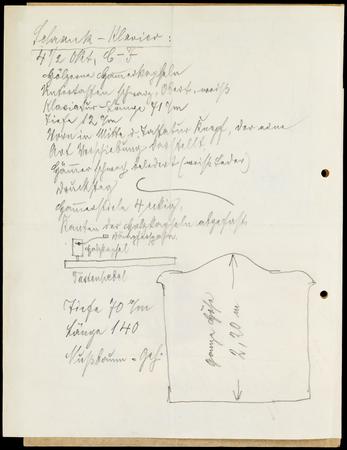 Schrank-Klavier:
4 1/2 Okt, C-F
Hölzerne Hammerkapseln
Untertasten schwarz, Obert. weiß
Klaviatur-Länge 71 c/m
Tiefe 12 c/m
Vorn in Mitte d. Tastatur Knopf, der eine
Art Verschiebung darstellt.
Hämmer schwach beledert (weiß Leder)
Hammerstiele 4 eckig,
Kanten der Holzkapseln abgefast.
Holzkapsel
Tastenhebel
Tiefe 70 c/m
Länge 140
Nußbaum-Geh.
ganze Höhe
2,20 m